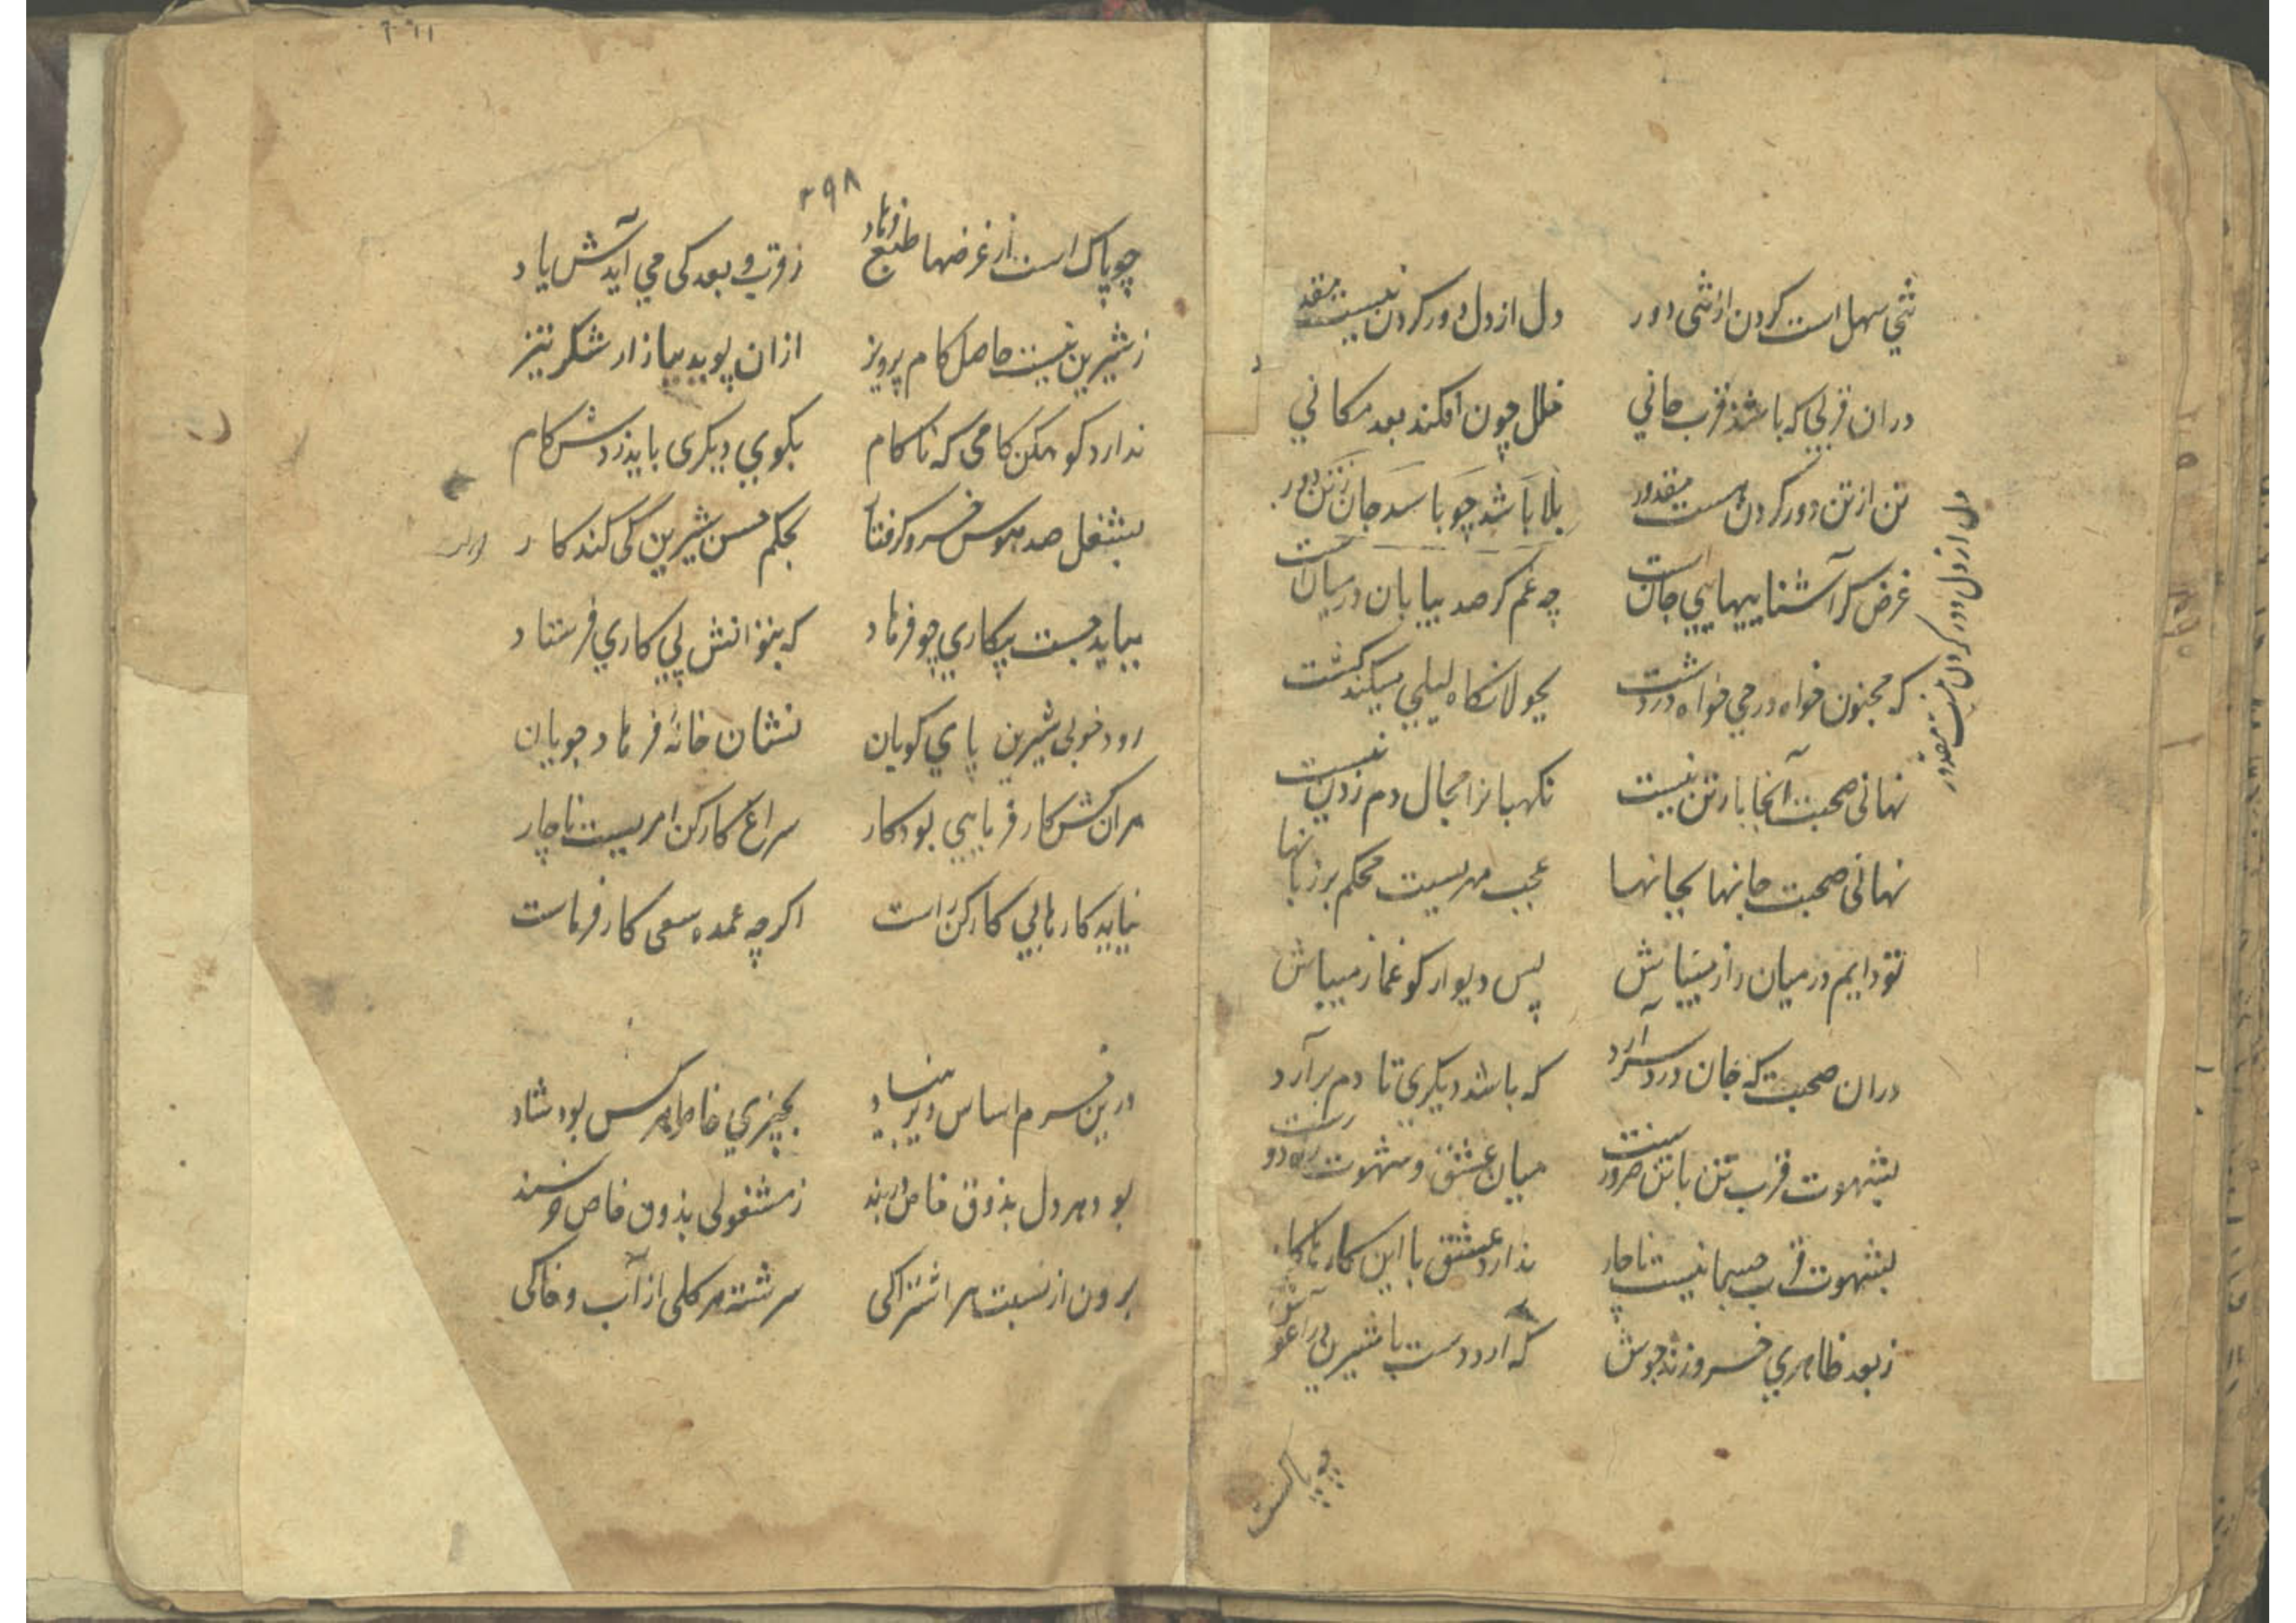 تنی سهل است کردن از تنی دور دل از دل دور کردن نیست مقدور
در ان قربی که باشد قرب جانی خلل چون افکند بعد مکانی
تن از تن دور کردن هست مقدور بلا باشد چو باشد جان ز تن دور
دل از دل دور کردن نیست مقدور
غرض کر آشناییهای جان است چه غم کر صد بیابان در میان است
که مجنون خواه در حی خواه در دشت بجولانکاه لیلی میکند کشت
نهانی صحبت آنجا بار تن نیست نکهبانرا مجال دم زدن نیست
نهانی صحبت جانها بجانها عجب مهریست محکم بر زبانها
تو دایم در میان راز میباش پس دیوار کو غماز میباش
در ان صحبت که جان دردسر آرد که باشد دیکری تا دم برآرد
بشهوت قرب تن با تن ضرور ست میان عشق و شهوت راه دور ست
بشهوت قرب جسمانیست ناچار ندارد عشق با این کارها کار
ز بعد ظاهری خسرو زند جوش که آرد دست با شیرین در اغوش
چه پاکست
۲۹۸
چو پاک است از غرضها طبع فرهاد ز قرب و بعد کی می آیدش یاد
ز شیرین نیست حاصل کام پرویز ازان پوید ببازار شکر تیز
ندارد کوهکن کامی که ناکام بکوی دیکری باید زدش کام
بشغل صد هوس خسرو کرفتار بحکم حسن شیرین کی کند کار
بباید جست بیکاری چو فرهاد که بتوانش پی کاری فرستاد
رود خوبی شیرین پای کوبان نشان خانهٔ فرهاد جویان
هر ان کش کار فرمایی بود کار سراغ کارکن امریست ناچار
نیابد کارهایی کارکن راست اکرچه عمده سعی کارفرماست
درین خرم اساس دیر بنیاد بچیزی خاطر هر کس بود شاد
بود هر دل بذوق خاص در بند ز مشغولی بذوق خاص خرسند
برون از نسبت هر اشتراکی سرشته هر کلی از آب و خاکی